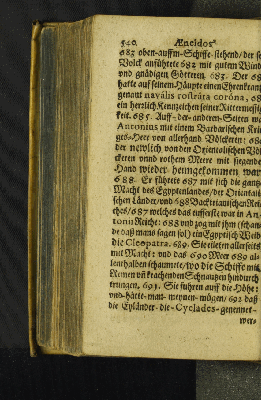 540. Æneidos
683 oben-auffm-Schiffe-stehend/der se
Volck anführete 682 mit gutem Wind
und gnädigen Göttern. 683. Der 68
hatte auf seinem Häupte einen Ehrenkrantz
genant navális rostráta coróna, 68
ein herrlich Kennzeichen seiner Rittermessig
keit. 685. Auff-der-anderen-Seiten wa
Antonius mit einem Barbarischen Krie
ges-Heer von allerhand Völckeren: 686
der newlich von den Orientalischen Völ
ckeren unnd rothem Meere mit siegende
Hand wieder heimgekommen war
688. Er führete 687 mit sich die gantz
Macht des Egyptenlandes/der Oriental
schen Länder/und 698 Bactrianischen Rei
ches/687 welches das eusserste war in An-
tonii Reich: 688 und zog mit ihm (schan-
de daß mans sagen sol) ein Egyptisch Weib
die Cleopatra. 689. Sie eileten allerseits
mit Macht: und das 690 Meer 689 al-
lenthalben schaumete/wo die Schiffe mit
Riemen und krachenden Schnautzen hindurch
trungen. 691. Sie fuhren auff die Höhe:
und-hätte-man-meynen-mögen/692 daß
die Eyländer-die-Cyclades-genennet-
wer-